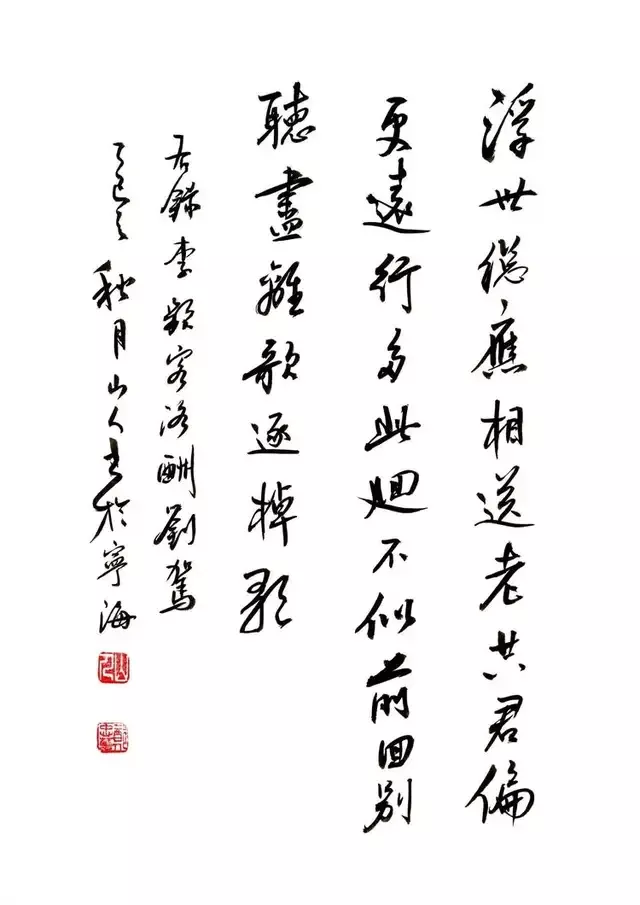 浮世總應相送老共君偏
更遠行多此迴不似前回別
聽盡離歌逐棹歌
右錄李頻客洛酬劉駕
乙巳之秋月山人書於寧海